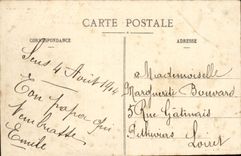 CARTE POSTALE
CORRESPONDANCE
ADRESSE
Sens 4 Août 1914
Ton papa qui
t'embrasse
Emile
Mademoiselle
Marguerite Bouvard
5 Rue Gâtinais
Pithiviers
Loiret